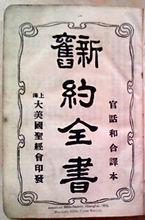 官話和合譯本
新舊約全書
上海大美國聖經會印發
American Bible Society, Shanghai